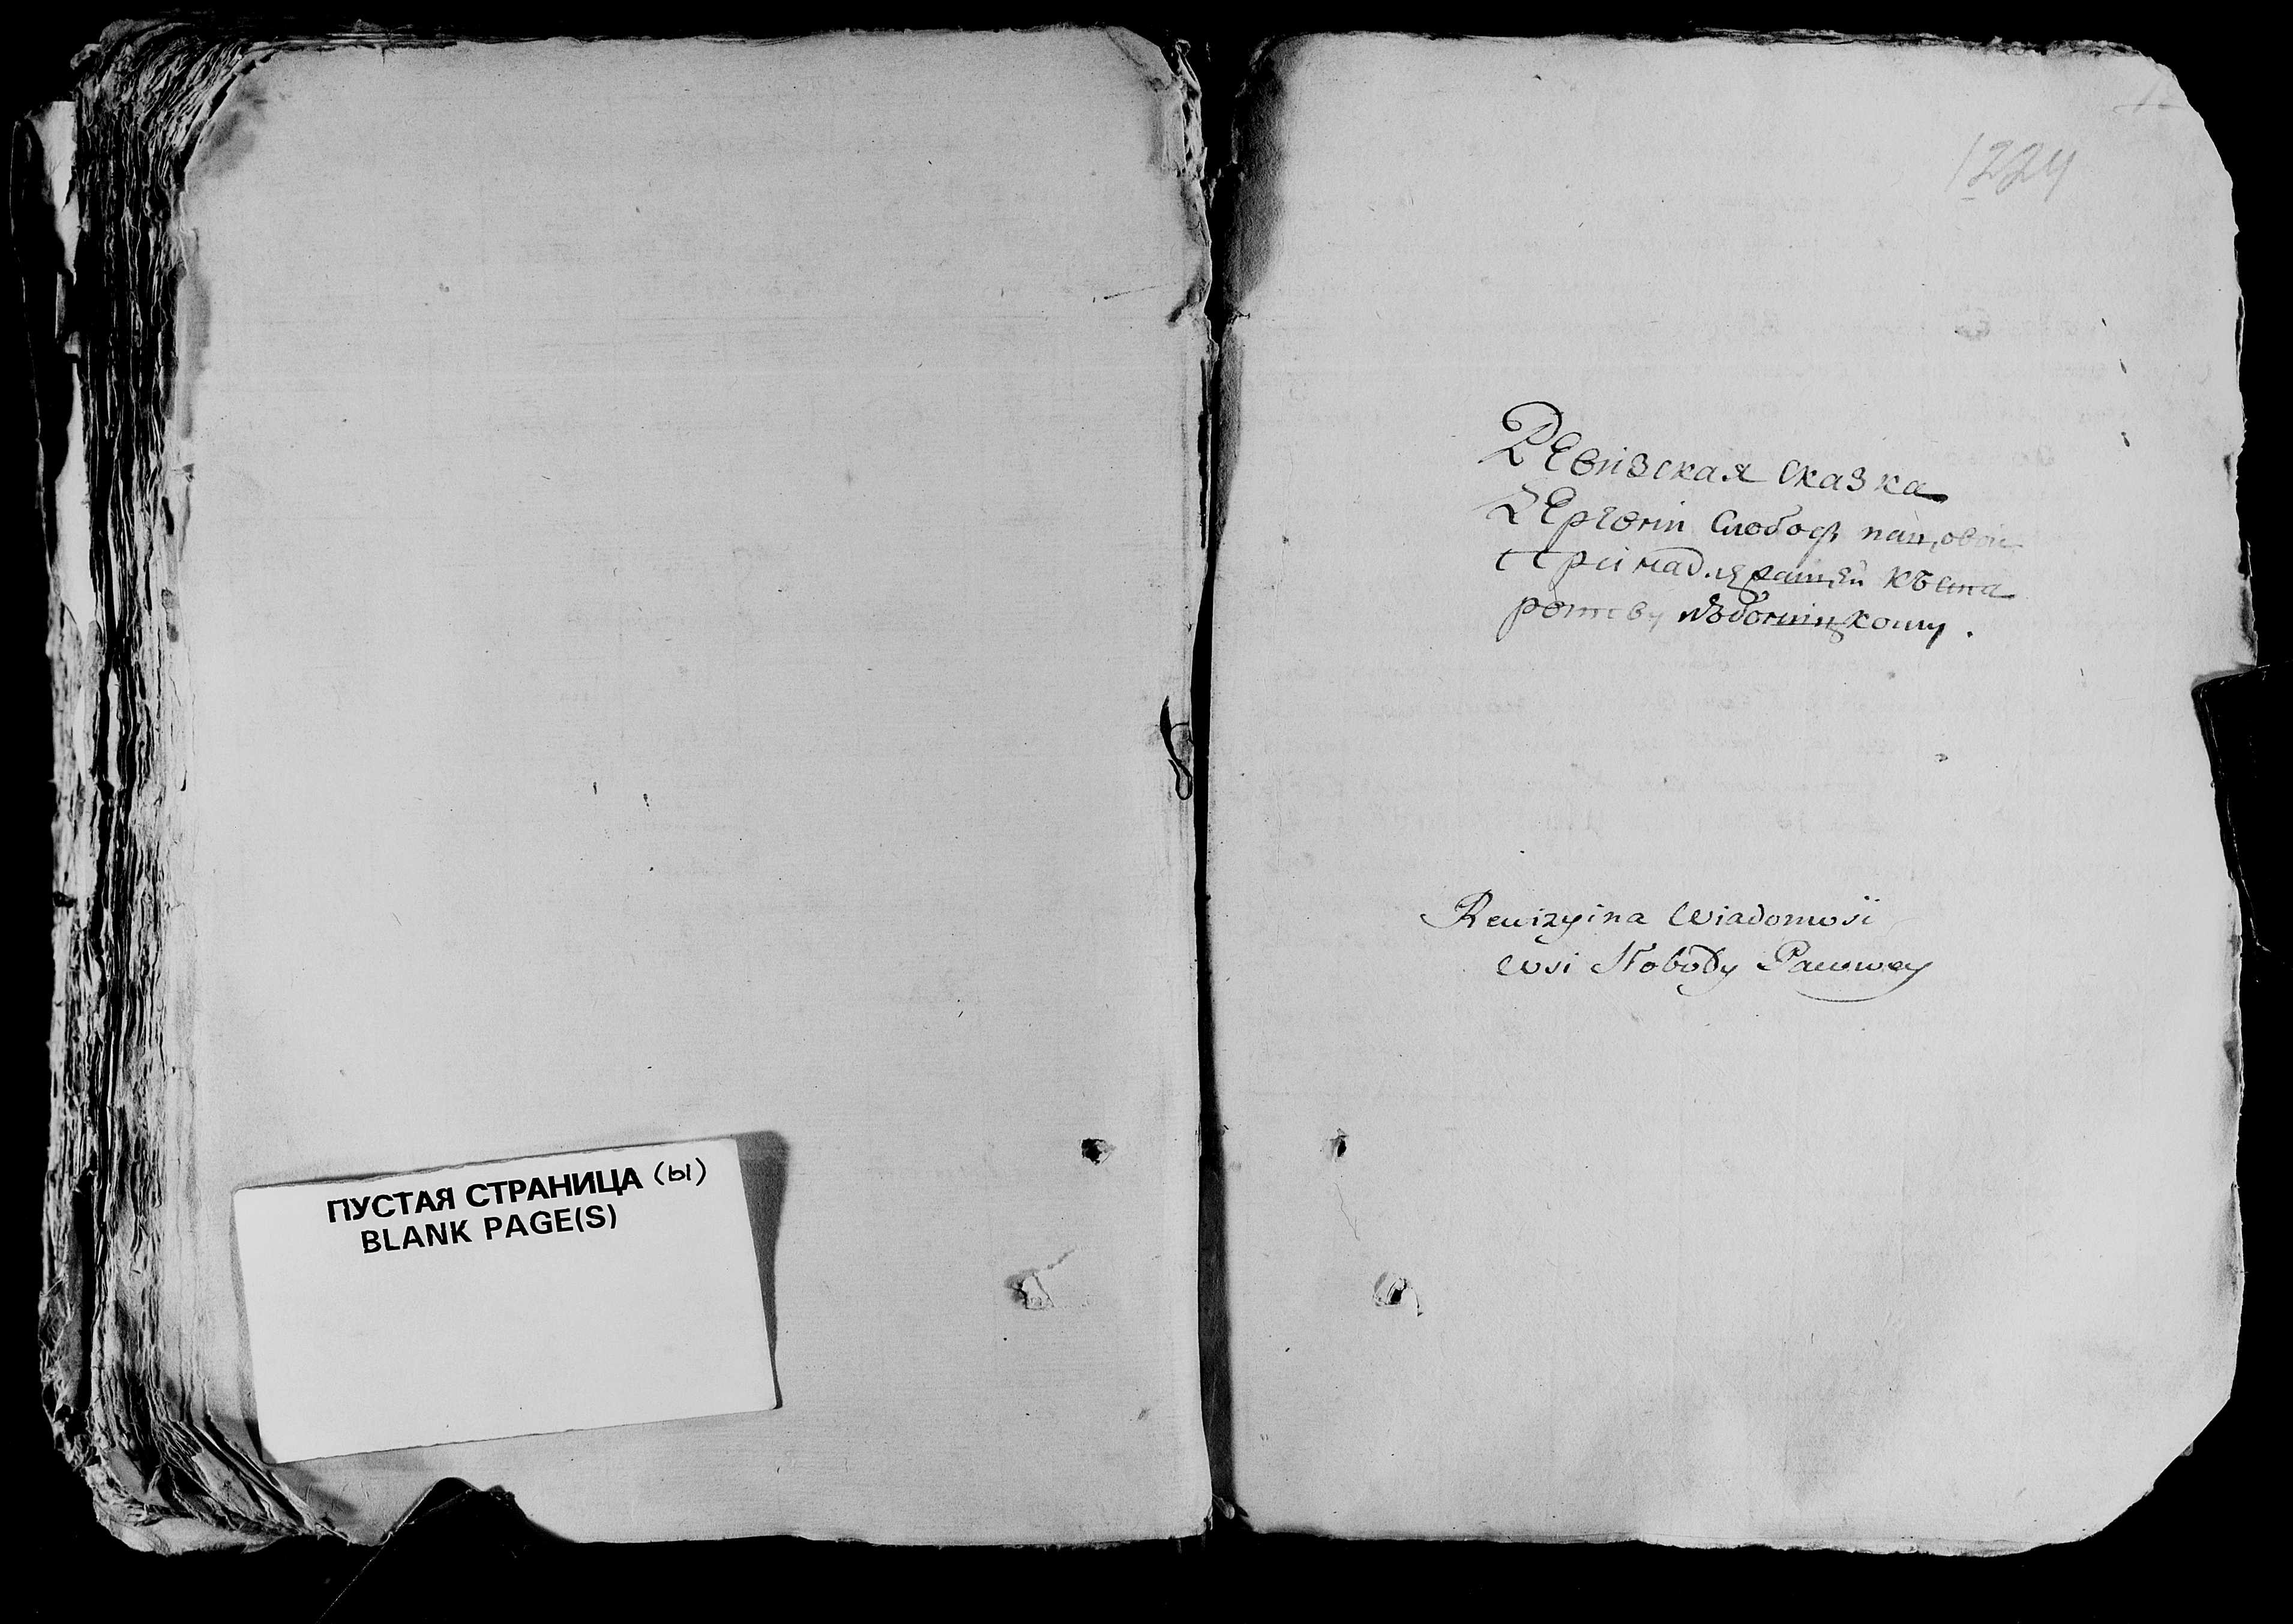 ПУСТАЯ СТРАНИЦА (ы)
BLANK PAGE(S)
1224
Ревизская сказка
Слободы пацовой
принадлежащей къ ста
роству
Rewizyina Wiadomosi
wsi Słobody Pacowey